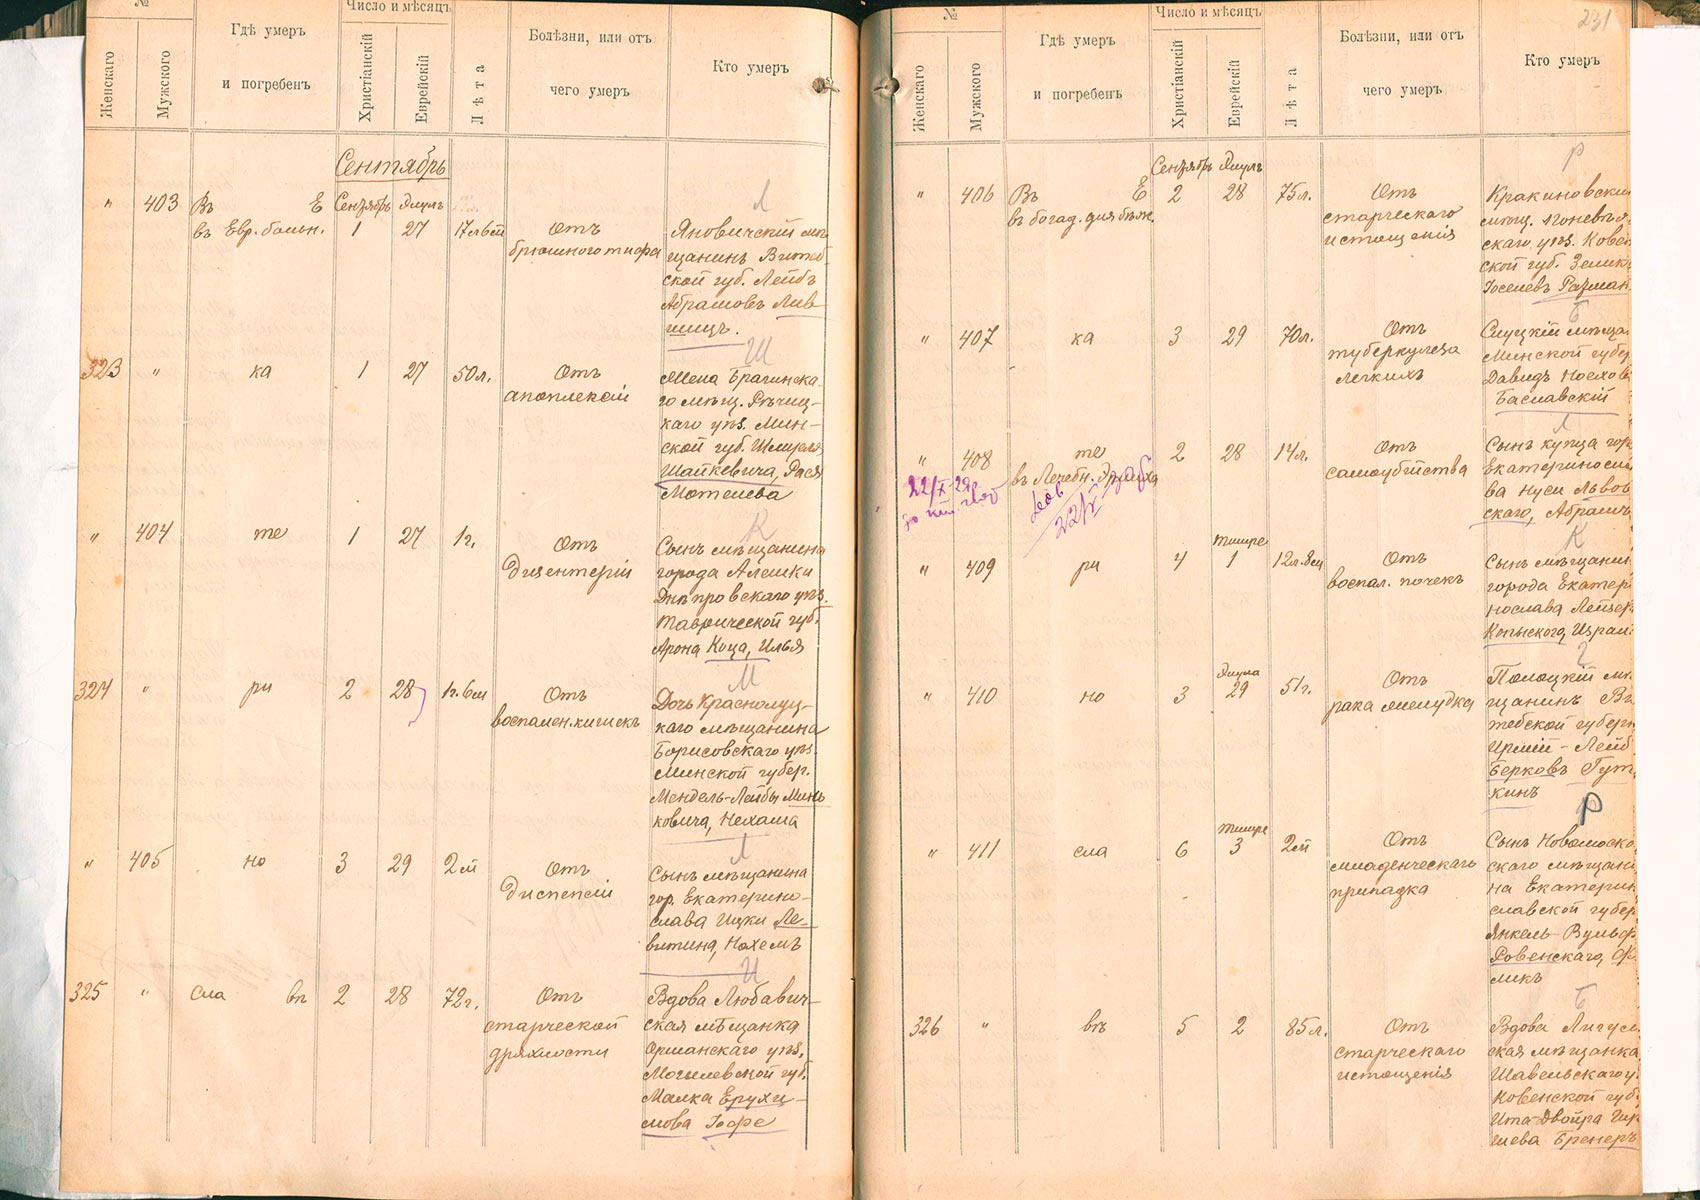 №
Женскаго
Мужского
Гдѣ умеръ
и погребенъ
Число и мѣсяцъ
Христіанскій
Еврейскій
Лѣта
Болѣзни, или отъ
чего умеръ
Кто умеръ
Сентябрь
" 403 Въ Е Сентябрь Элулъ
въ Евр. больн. 1 27 17л 6м
Отъ
брюшного тифа
Л
Яновичскій мѣ
щанинъ Витеб
ской губ. Лейбъ
Абрамовъ Лив
шицъ.
323 " ка 1 27 50л.
Отъ
апоплексіи
Ш
Жена Брагинска
го мѣщ. Рѣчиц-
каго уѣз. Мин-
ской губ. Шмуеля
Шайкевича, Рася
Мотелева
" 404 те 1 27 1г.
Отъ
Дизентеріи
К
Сынъ мѣщанина
города Алешки
Днѣпровскаго уѣз.
Таврической губ.
Арона Коца, Илья
324 " ри 2 28 1г. 6м
Отъ
воспален. кишекъ
М
Дочь Краснолуц-
каго мѣщанина
Борисовскаго уѣз.
Минской губер.
Мендель-Лейбы Минь
ковича, Нехама
" 405 но 3 29 2м
Отъ
Диспепсіи
Л
Сынъ мѣщанина
гор. Екатерино-
слава Ицки Ле-
витина, Нохемъ
325 " сла вѣ 2 28 72г.
Отъ
старческой
дряхлости
И
Вдова Любавич-
ская мѣщанка
Оршанскаго уѣз.
Могилевской губ.
Малка Ерухи-
мова Іофе
231
№
Женскаго
Мужского
Гдѣ умеръ
и погребенъ
Число и мѣсяцъ
Христіанскій
Еврейскій
Лѣта
Болѣзни, или отъ
чего умеръ
Кто умеръ
Сентябрь Элулъ
" 406 Въ Е 2 28 75л.
въ богад. для бѣж.
Отъ
старческаго
истощенія
Р
Кракиновскій
мѣщ. Поневѣж
скаго уѣз. Ковен
ской губ. Зелик
Іоселевъ Разман
" 407 ка 3 29 70л.
Отъ
туберкулеза
легкихъ
Б
Слуцкій мѣща
Минской губер
Давидъ Носховъ
Баславскій
" 408 те 2 28 14л.
въ Лечебн.
22/X 29
22/X
Отъ
самоубійства
Л
Сынъ купца гор
Екатериносла
ва Нуси Львов
скаго, Абрамъ
Тишре
" 409 ри 4 1 12л. 8м
Отъ
воспал. почекъ
К
Сынъ мѣщанин
города Екатери
нослава Лейзер
Копыскога, Израил
Элула
" 410 но 3 29 51г.
Отъ
рака желудка
Г
Полоцкій мѣ
щанинъ Ви
тебской губерн
Ирмій-Лейб
Берковъ Гут
кинъ
Тишре
" 411 сла 6 3 2м
Отъ
младенческаго
припадка
Р
Сынъ Новомоско
скаго мѣщани
на Екатерин
славской губер
Янкель-Вульф
Ровенскаго,
ликъ
326 " вѣ 5 2 85л.
Отъ
старческаго
истощенія
Б
Вдова Лигум
ская мѣщанка
Шавельскаго у
Ковенской губ
Ита-Двойра Гир
шева Бренеръ